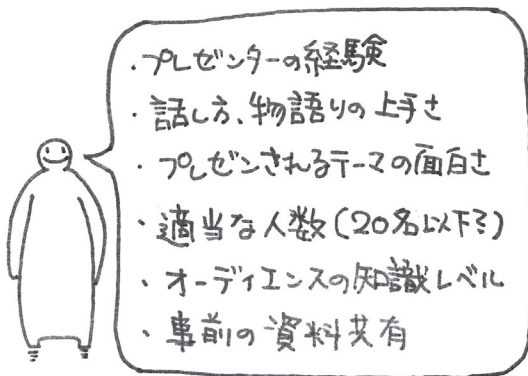 ・プレゼンターの経験
・話し方、物語りの上手さ
・プレゼンされるテーマの面白さ
・適当な人数(20名以下?)
・オーディエンスの知識レベル
・事前の資料共有